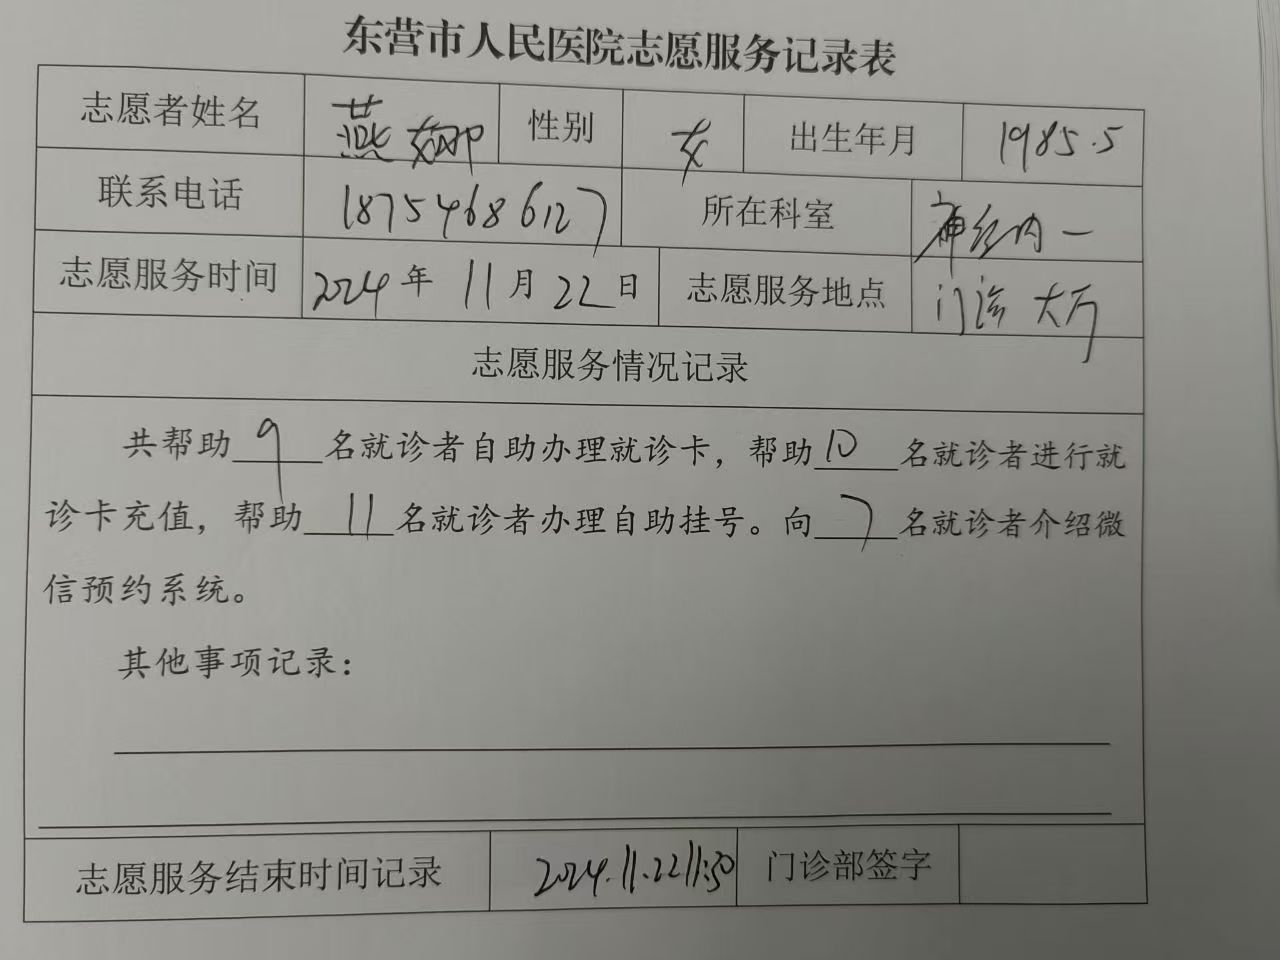 东营市人民医院志愿服务记录表
志愿者姓名 燕娜 性别 女 出生年月 1985.5
联系电话 18754686127 所在科室 神经内一
志愿服务时间 2024年 11月 22日 志愿服务地点 门诊大厅
志愿服务情况记录
共帮助9名就诊者自助办理就诊卡，帮助10名就诊者进行就
诊卡充值，帮助11名就诊者办理自助挂号。向7名就诊者介绍微
信预约系统。
其他事项记录：
志愿服务结束时间记录 2024.11.22 11:50 门诊部签字